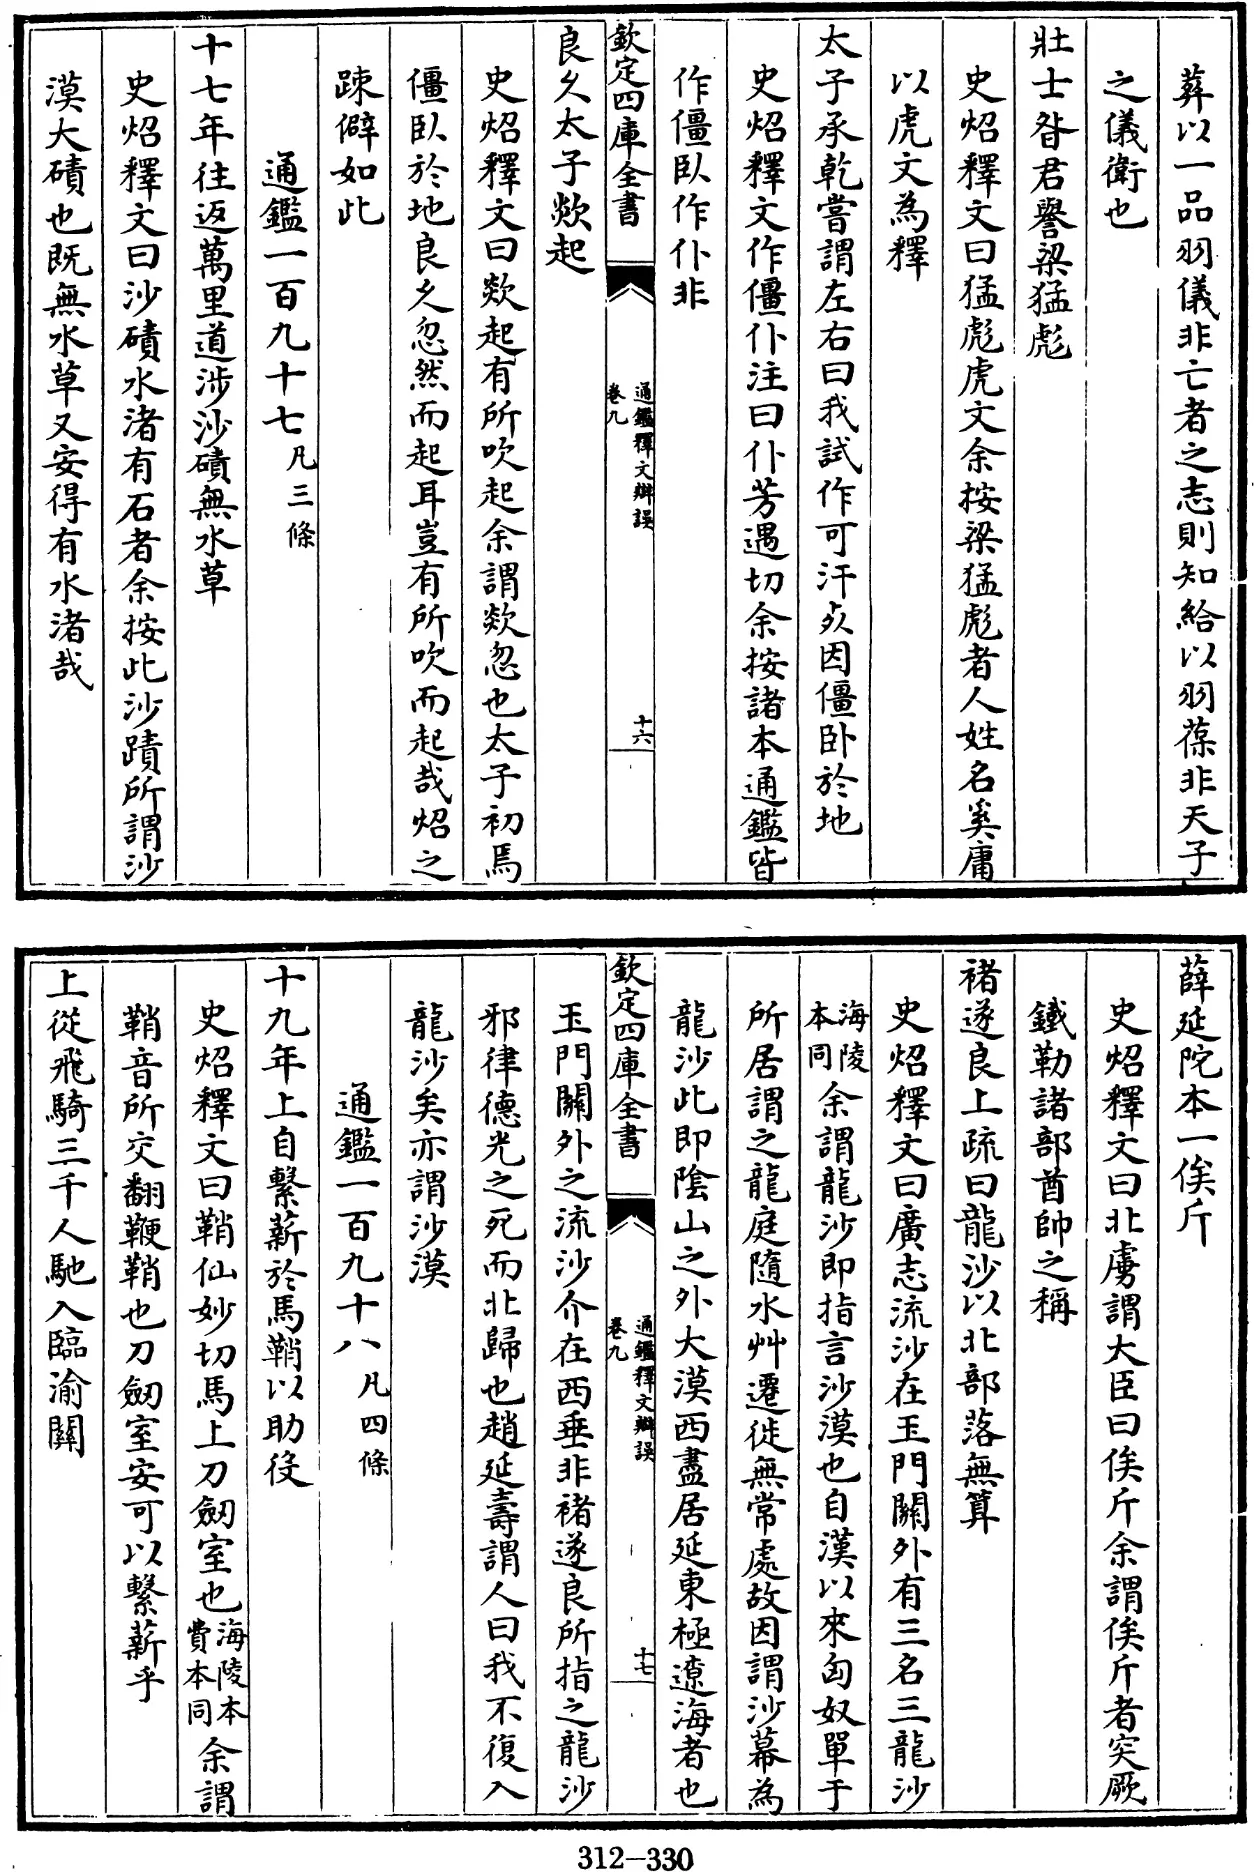 葬以一品羽儀非亡者之志則知給以羽葆非天子
之儀衛也
壯士昝君謩梁猛彪
史炤釋文曰猛彪虎文余按梁猛彪者人姓名奚庸
以虎文為釋
太子承乾嘗謂左右曰我試作可汗死因僵卧於地
史炤釋文作僵仆注曰仆芳遇切余按諸本通鑑皆
作僵臥作仆非
欽定四庫全書
通鑑釋文辨誤
卷九
十六
良久太子欻起
史炤釋文曰欻起有所吹起余謂欻忽也太子初焉
僵臥於地良久忽然而起耳豈有所吹而起哉炤之
疎僻如此
通鑑一百九十七凡三條
十七年往返萬里道涉沙磧無水草
史炤釋文曰沙磧水渚有石者余按此沙蹟所謂沙
漠大磧也既無水草又安得有水渚哉
薛延陀本一俟斤
史炤釋文曰北虜謂大臣曰俟斤余謂俟斤者突厥
鐵勒諸部酋帥之稱
褚遂良上疏曰龍沙以北部落無算
史炤釋文曰廣志流沙在玉門關外有三名三龍沙
海陵
本同
余謂龍沙即指言沙漠也自漢以來匈奴單于
所居謂之龍庭隨水艸遷徙無常處故因謂沙幕為
龍沙此即陰山之外大漠西盡居延東極遼海者也
欽定四庫全書
通鑑釋文辨誤
卷九
十七
玉門關外之流沙介在西垂非褚遂良所指之龍沙
邪律德光之死而北歸也趙延壽謂人曰我不復入
龍沙矣亦謂沙漠
通鑑一百九十八凡四條
十九年上自繫薪於馬鞘以助役
史炤釋文曰鞘仙妙切馬上刀劒室也
海陵本
費本同
余謂
鞘音所交翻鞭鞘也刀劒室安可以繫薪乎
上從飛騎三千人馳入臨渝關
312-330